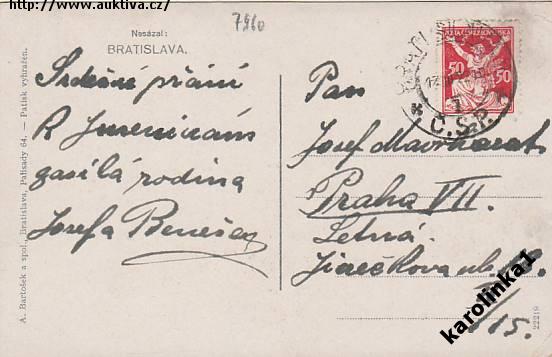 http://www.auktiva.cz/
7960
Nasázal:
BRATISLAVA.
Srdečné přání
K Jmeninám
zasílá rodina
Josefa Beneše
A. Bartošek a spol., Bratislava, Palisady 64. — Patisk vyhražen.
50
50
Č.S.P.
Pan
Josef
Praha VII.
Letná
Jirečkova ul.
15.
22219
karolinka1